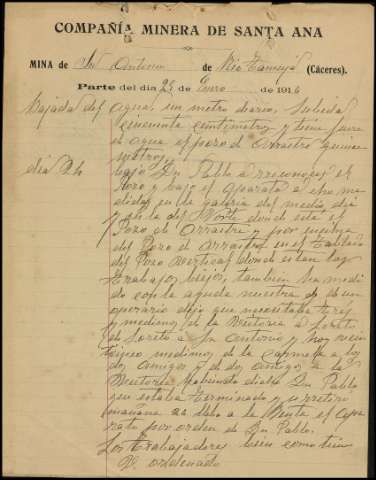 COMPAÑÍA MINERA DE SANTA ANA
MINA de Sn Antonio de Rio Tamuja (Cáceres).
Parte del dia 25 de Enero de 1916
Bajada del agua un metro diario, subida
cincuenta centimetros y tiene fuera
de agua el pozo de Arrastre quince
metros,
dia 24 bajo Dn Pablo a reconocer el
Pozo y bajo el aparato a
en la galeria del medio dia
y a la del Norte donde esta el
Pozo de Arrastre y por encima
del Pozo de Arrastre en el
del Pozo Vertical donde estan los
trabajos biejos, tambien ha medi
do con la ayuda nuestra y de un
operario dijo que necesitaba tres
y medimos de la Bectoria a Loreto
de Loreto a Sn Antonio y hoy
medimos de la a los
dos amigos y de dos amigos a la
Bectoria, dicho Dn Pablo
que estaba terminado y
mañana se llebo a la el apa
rato por orden de Dn Pablo.
Los trabajadores bien como tiene
V. ordenado